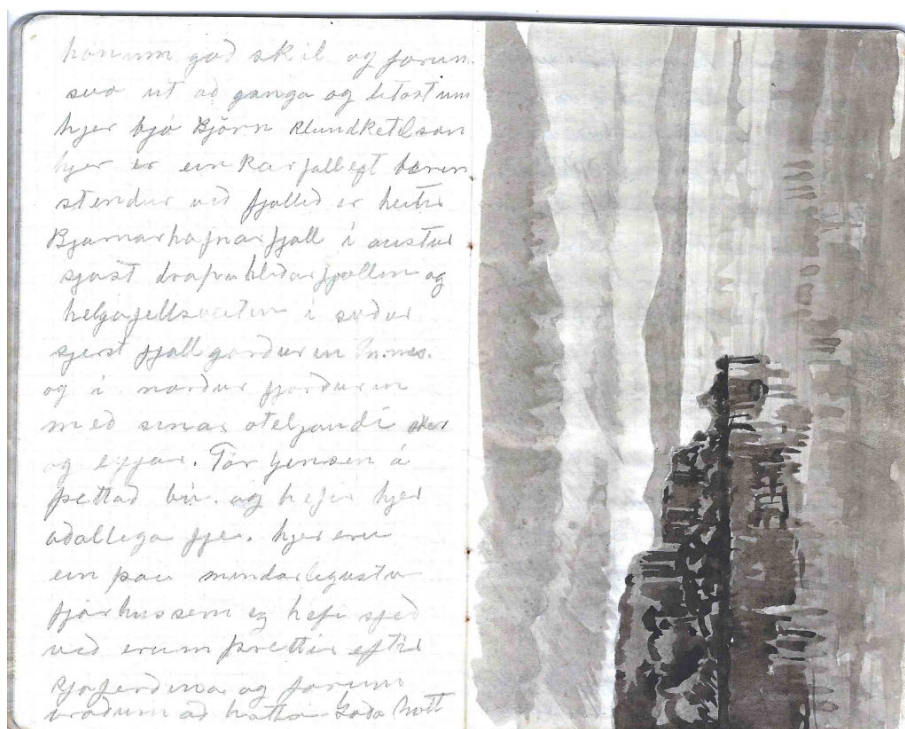 honum god skil og forum
svo ut að ganga og litast um
hjer bjó Björn Blundketilson
hjer er einkar fallegt bærin
stendur við fjallið er heitir
Bjarnarhafnarfjall i austur
sjást drapuhlidarfjallin og
helgafellssveitin i sudur
sjest fjallgardurin
og i nordur fjordurin
með sinar oteljandi sker
og eyjar. Tor Jensen á
þettað bú. og hefir hjer
adallega fje. hjer eru
ein þau mindarlegustu
fjárhus sem eg hefi sjed
við erum þrettir eftir
sjoferdina og forum
bradum að hatta Goda nott